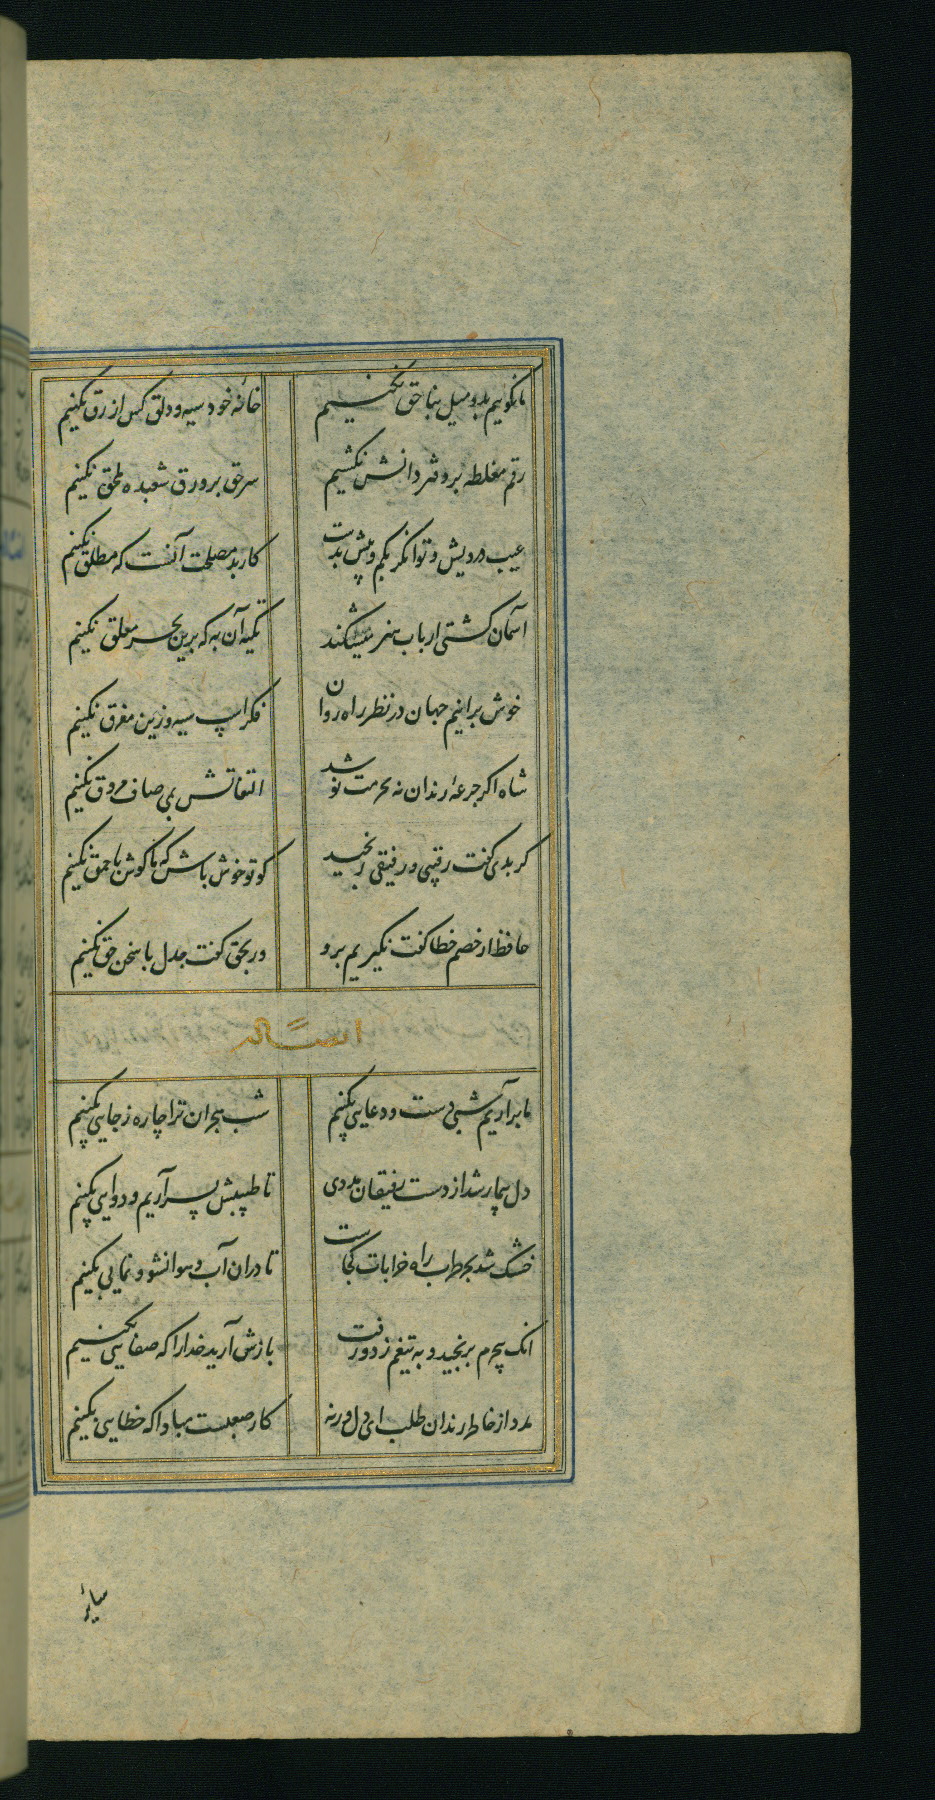 ما نکوییم بد و میل بناحق نکنیم خانهٔ خود سیه و دلق کس ازرق نکنیم
رقم مغلطه بر دفتر دانش نکشیم سر حق بر ورق شعبده ملحق نکنیم
عیب درویش و توانکر بکم و بیش بدست کار بد مصلحت آنست که مطلق نکنیم
آسمان کشتی ارباب هنر میشکند تکیه آن به که برین بحر معلق نکنیم
خوش برانیم جهان در نظر راه روان فکر اسپ سیه و زین مغرق نکنیم
شاه اکر جرعهٔ رندان نه بحرمت نوشد التفاتش بمی صاف مروق نکنیم
کر بدی کفت رقیبی و رفیقی رنجید کو تو خوش باش که ما کوش باحمق نکنیم
حافظ ار خصم خطا کفت نکیریم برو ور بحق کفت جدل با سخن حق نکنیم
ایضاً له
ما برآریم شبی دست و دعایی بکنیم شب هجران ترا چاره ز جایی بکنیم
دل بیمار شد از دست رفیقان مددی تا طبیبش بسر آریم و دوایی بکنیم
خشک شد بیخ طرب راه خرابات کجاست تا دران آب و هوا نشو و نمایی بکنیم
انک بیجرم برنجید و به تیغم زد و رفت بازش آرید خدا را که صفایی بکنیم
مدد از خاطر رندان طلب ای دل ورنه کار صعبست مبادا که خطایی بکنیم
سایهٔ